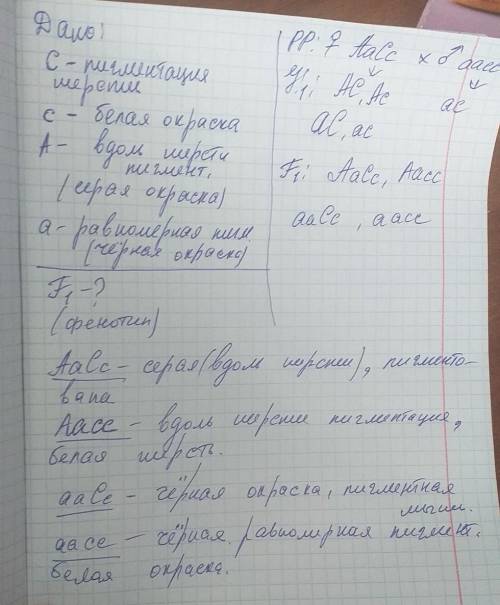 Дано:
С - пигментация
шерсти
с - белая окраска
А - вдоль шерсти
пигмент.
(серая окраска)
а - равномерная пигм.
(чёрная окраска)
F₁ - ?
(фенотип)
РР: ♀ АаСс × ♂ аасс
g₁: АС, Ас
ас
аС, ас
F₁: АаСс, Аасс
ааСс, аасс
АаСс - серая (вдоль шерсти), пигменто-
вана
Аасс - вдоль шерсти пигментация,
белая шерсть.
ааСс - чёрная окраска, пигментная
мыши.
аасс - чёрная равномерная пигмент.
белая окраска.